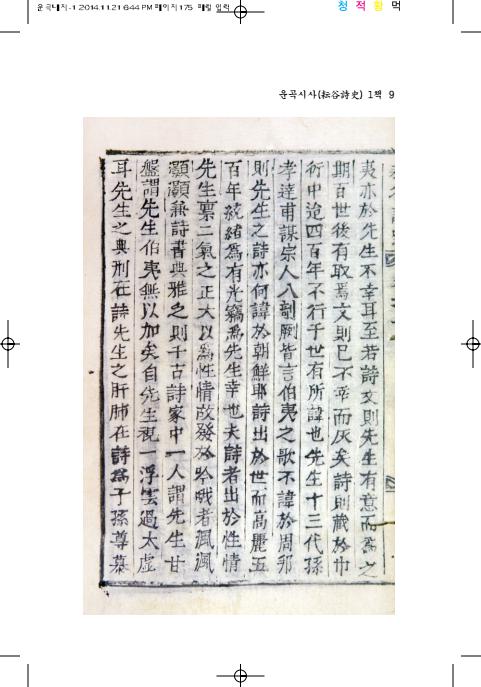 운곡대지-1 2014.11.21 6:44 PM 페이지175 매킨 입력
청 적 황 먹
운곡시사(耘谷詩史) 1책 9
夷亦於先生不幸耳至若詩文則先生有意而爲之
期百世後有取焉文則已不幸而灰矣詩則藏於巾
衍中迨四百年不行于世有所諱也先生十三代孫
孝達甫謀宗人入剞劂皆言伯夷之歌不諱於周邦
則先生之詩亦何諱於朝鮮耶詩出於世而高麗五
百年統緖爲有光竊爲先生幸也夫詩者出於性情
先生禀二氣之正大以爲性情故發於吟哦者渢渢
灝灝兼詩書典雅之則千古詩家中一人謂先生甘
盤謂先生伯夷無以加矣自先生視一浮雲過太虛
耳先生之典刑在詩先生之肝肺在詩爲子孫尊慕